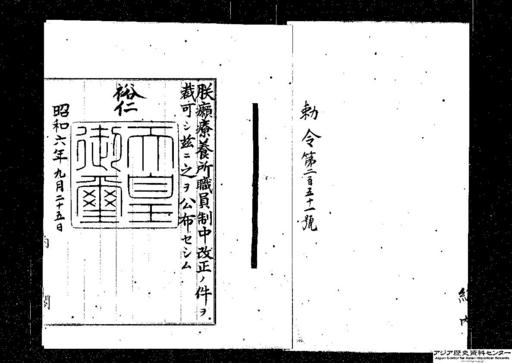 勅令第二百五十一號
朕癩療養所職員制中改正ノ件ヲ
裁可シ茲ニ之ヲ公布セシム
裕仁
天皇御璽
昭和六年九月二十五日
内閣
アジア歴史資料センター
Japan Center for Asian Historical Records